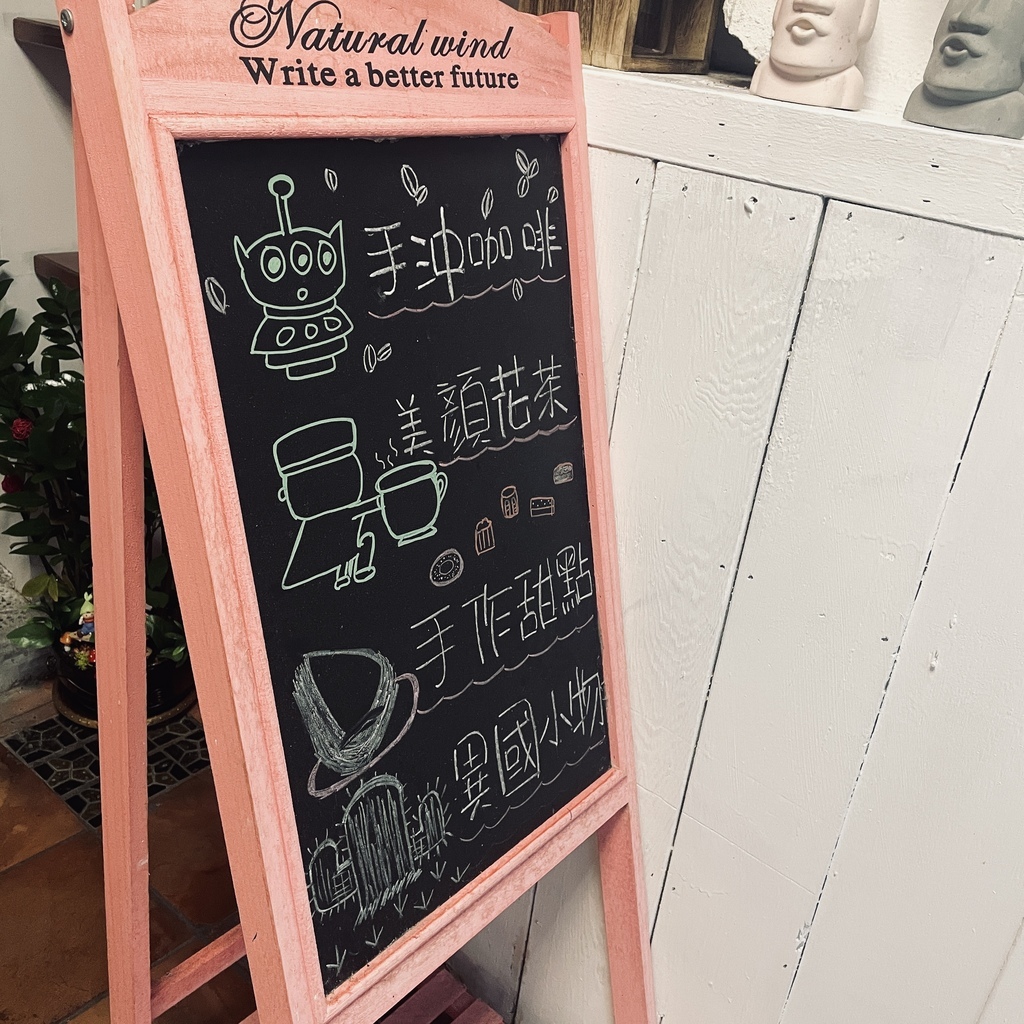 Natural wind
Write a better future
手沖咖啡
美顏花茶
手作甜點
異國小物